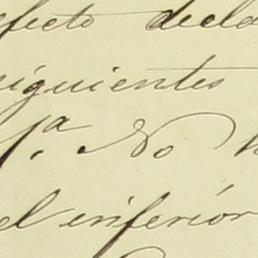 efecto decla
siguientes
1.ª No h
el inferior